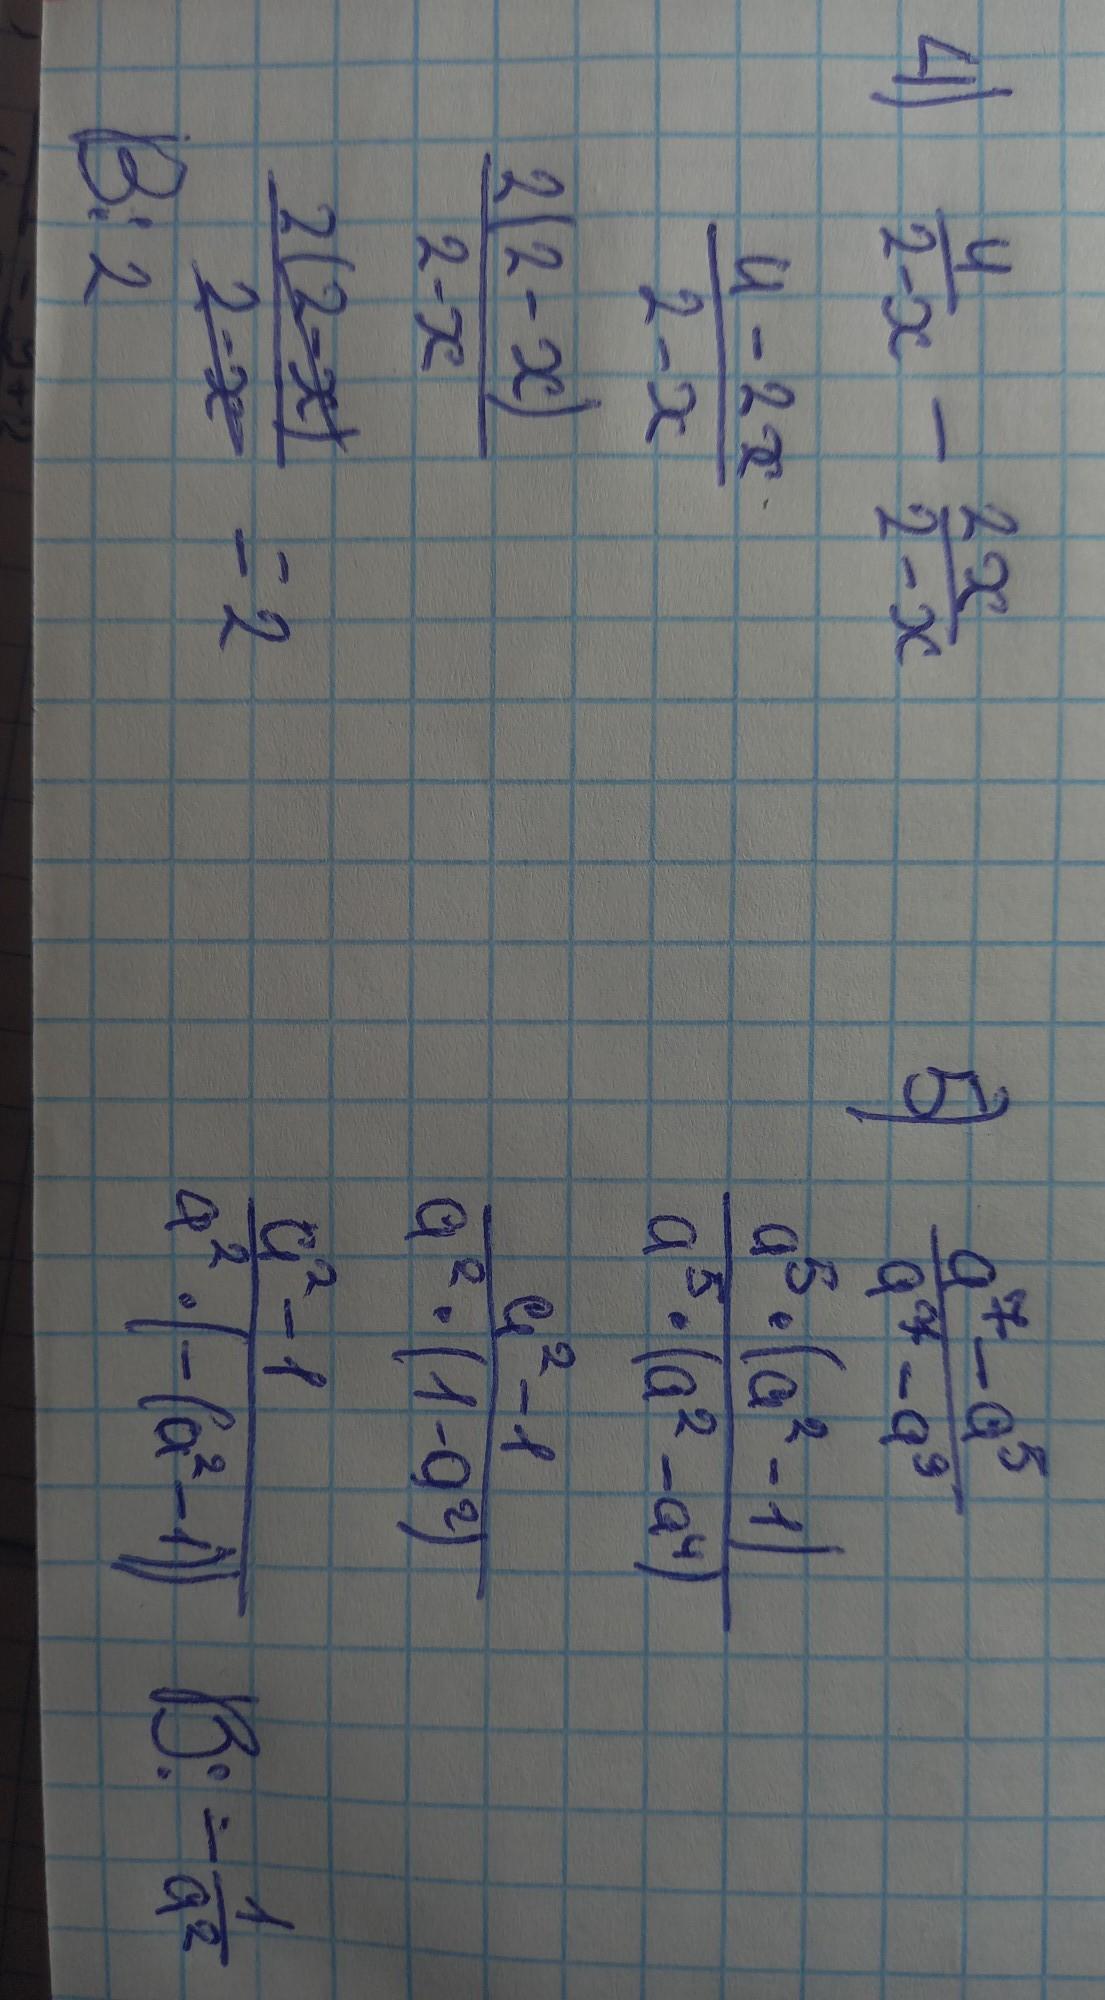 4) 4/(2-x) - 2x/(2-x)
(4-2x)/(2-x)
2(2-x)/(2-x)
2(2-x)/(2-x) = 2
В: 2
5) (a⁷-a⁵)/(a⁷-a⁹)
a⁵·(a²-1)/a⁵·(a²-a⁴)
(a²-1)/a²·(1-a²)
(a²-1)/a²·(-(a²-1))
В: -1/a²